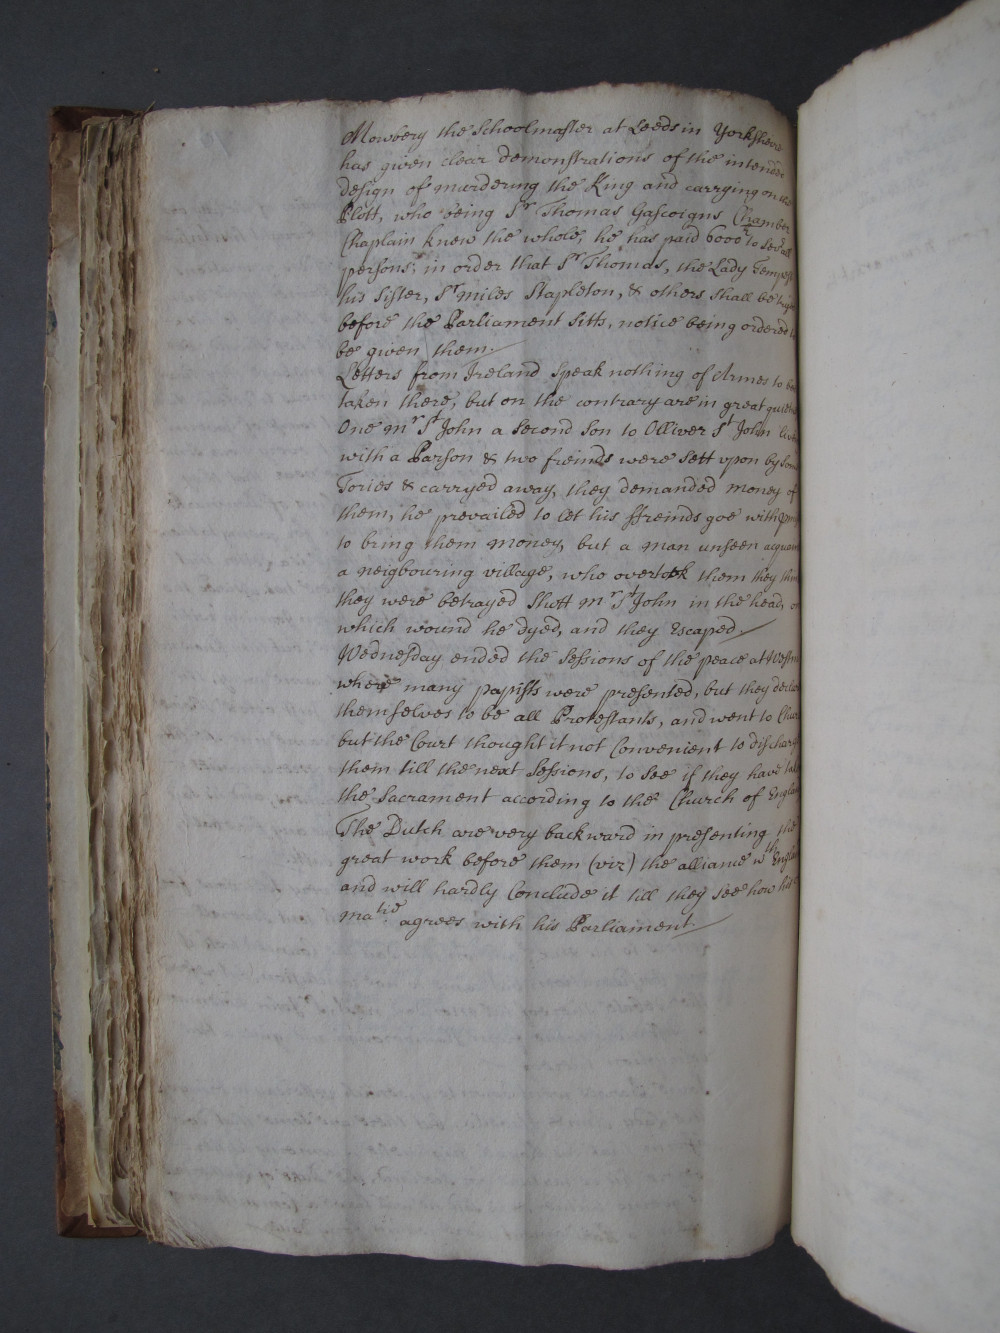 Mowbery the Schoolmaster at Leeds in Yorkshiere
has given clear demonstrations of the intended
design of murdering the King and carrying on the
Plott, who being Sr Thomas Gascoigns Chamber
Chaplain knew the whole, he has paid 6000 to
persons; in order that Sr Thomas, the Lady Tempest
his Sister, Sr miles Stapleton, & others shall be
before the Parliament sitts, notice being ordered to
be given them.
Letters from Ireland speak nothing of Armes to be
taken there, but on the contrary are in great
One mr St John a Second Son to Olliver St John
with a Parson & two freinds were sett vpon by Some
Tories & carryed away, they demanded money of
them, he prevailed to let his ffreinds goe with
to bring them money, but a man unseen
a neigbouring village, who overtook them they
they were betrayed shott mr St John in the head, of
which wound he dyed, and they Escaped.
Wednesday ended the Sessions of the peace at
where many papists were presented, but they
themselves to be all Protestants, and went to
but the Court thought it not Convenient to discharge
them till the next Sessions, to see if they have
the Sacrament according to the Church of England
The Dutch are very backward in presenting the
great work before them (viz) the alliance wth England
and will hardly Conclude it till they see how his
matie agrees with his Parliament